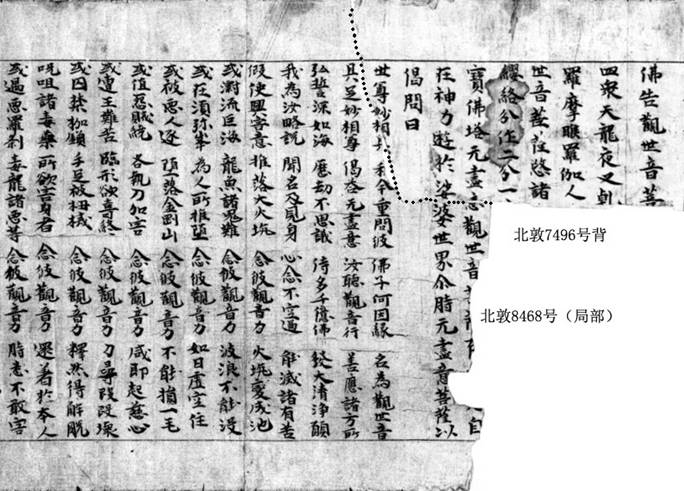 佛告觀世音菩
四眾天龍夜叉乹
羅摩睺羅伽人
世音菩薩愍諸
纓絡分作二分一
寶佛塔无盡意觀世音菩 自
在神力遊於娑婆世界尒時无盡意菩薩以
偈問曰
世尊妙相具 我今重問彼 佛子何因緣 名為觀世音
具足妙相尊 偈荅无盡意 汝聽觀音行 善應諸方所
弘誓深如海 歷劫不思議 侍多千億佛 發大清淨願
我為汝略說 聞名及見身 心念不空過 能滅諸有苦
假使興害意 推落大火坑 念彼觀音力 火坑變成池
或漂流巨海 龍魚諸鬼難 念彼觀音力 波浪不能沒
或在須弥峯 為人所推墮 念彼觀音力 如日虛空住
或被惡人逐 墮落金剛山 念彼觀音力 不能損一毛
或值惡賊繞 各執刀加害 念彼觀音力 咸即起慈心
或遭王難苦 臨形欲壽終 念彼觀音力 刀尋段段壞
或囚禁枷鎖 手足被杻械 念彼觀音力 釋然得解脫
呪咀諸毒藥 所欲害身者 念彼觀音力 還著於本人
或遇惡羅剎 毒龍諸惡等 念彼觀音力 時悉不敢害
北敦7496号背
北敦8468号（局部）